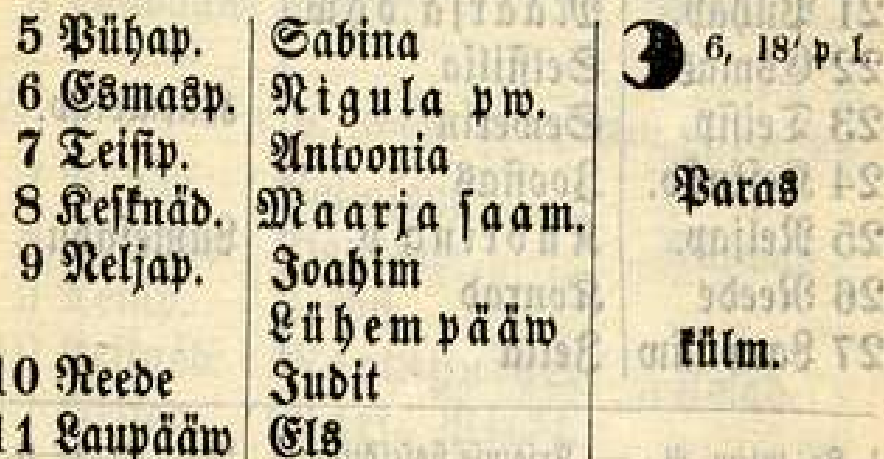 5 Pühap. Sabina 6, 18' p. l.
6 Esmasp. Nigula pw.
7 Teisip. Antoonia
8 Kesknäd. Maarja saam. Paras
9 Neljap. Joahim
Lühem pääw külm.
10 Reede Judit
11 Laupääw Els